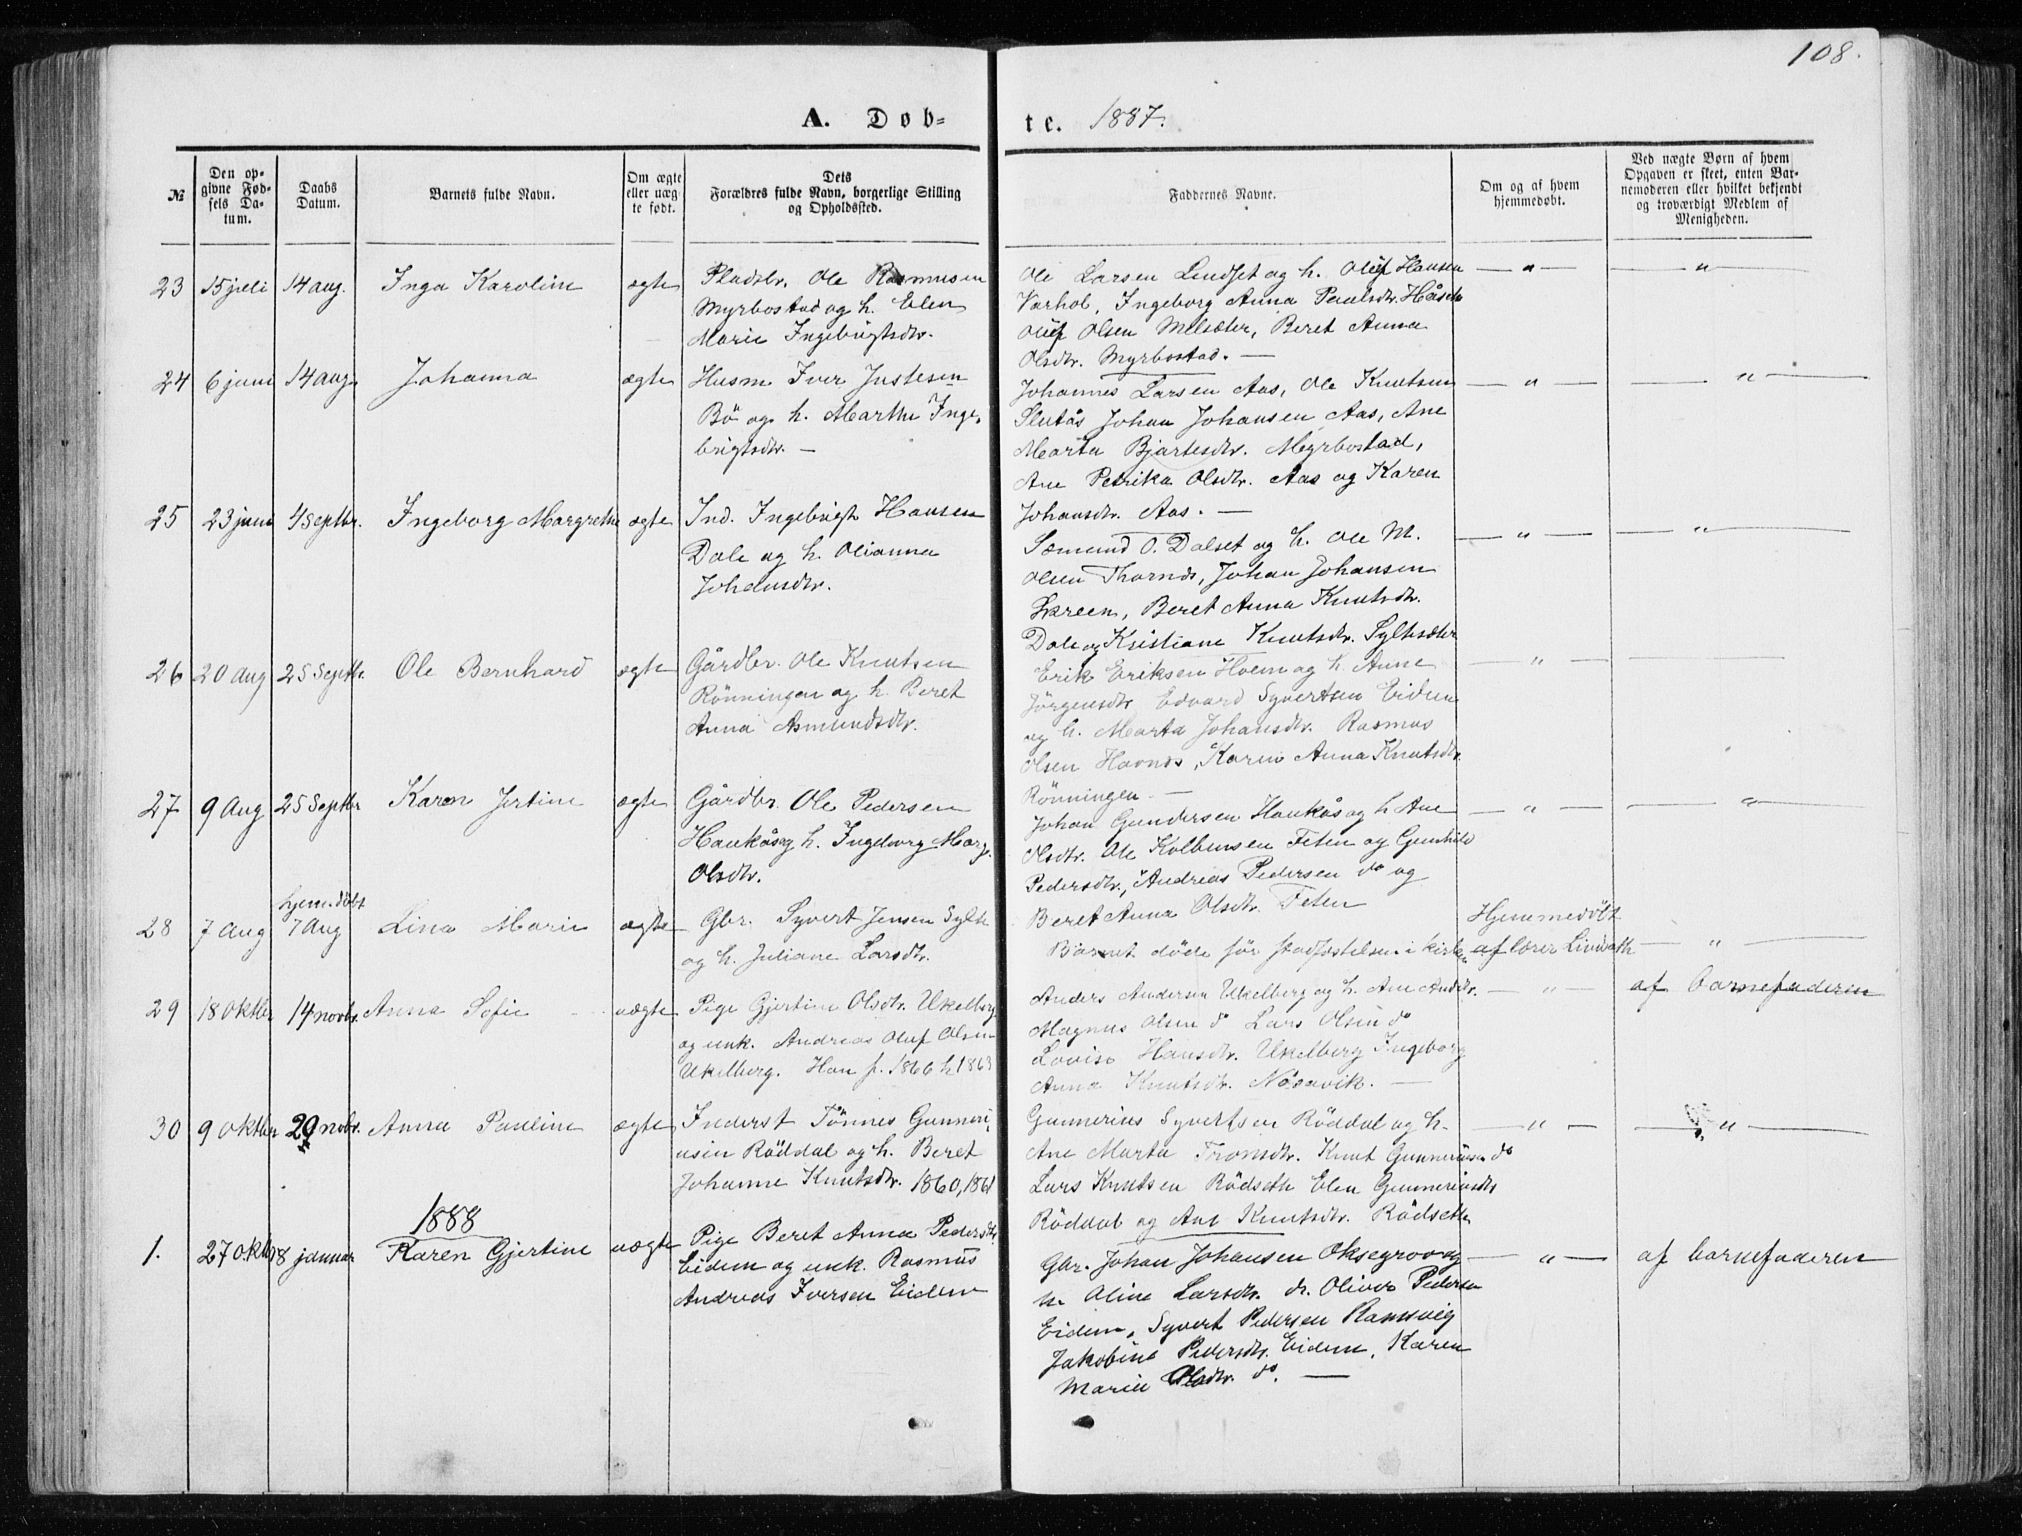 108.
A. Döb=
te. 1887.
№
Den op=
givne Fød=
sels Da=
tum.
Daabs
Datum.
Barnets fulde Navn.
Om ægte
eller uæg
te født.
Dets
Forældres fulde Navn, borgerlige Stilling
og Opholdssted.
Faddernes Navne.
Om og af hvem
hjemmedøbt.
Ved uægte Børn af hvem
Opgaven er skeet, enten Bar=
nemoderen eller hvilket bekjendt
og troværdigt Medlem af
Menigheden.
23 15 juli 14 aug. Inga Karoline ægte
Pladsbr. Ole Rasmusen
Myrbostad og h. Elen
Marie Ingebrigtsdtr.
Ole Larsen Lindset og h. Oluf Hansen — " —
Varhol, Ingeborg Anna Paulsdtr.
Oluf Olsen Melsæter, Beret Anna
Olsdtr. Myrbostad. —
24 6 juni 14 aug. Johanna ægte
Husm Iver Justesen
Bö og h. Marthe Inge,
brigtsdtr. —
Johannes Larsen Aas, Ole Knutsen — " — — " —
Slutås Johan Johansen Aas, Ane
Marta Bjartesdtr. Myrbostad,
Ane Petrika Olsdtr. Aas og Karen
Johansdtr. Aas. —
25 23 juni 4 Septbr. Ingeborg Margrethe ægte
Ind. Ingebrigt Hansen
Dale og h. Olianna
Johansdtr.
Sæmund O. Dalset og h. Ole M. — " — — " —
Olsen Thornes, Johan Johansen
Skreen, Beret Anna Knutsdtr.
Dale og Kristiane Knutsdtr. Syltesæter
26 20 aug 25 Septbr. Ole Bernhard ægte
Gårdbr. Ole Knutsen
Rönningen og h. Beret
Anna Asmundsdtr.
Erik Eriksen Hoem og h. Anne — " —
Jörgensdtr Edvard Syvertsen Eidem
og h. Marta Johansdtr. Rasmus
Olsen Havnes, Karen Anna Knutsdtr
Rönningen —
27 9 Aug 25 Septbr Karen Jertine ægte
Gårdbr. Ole Pedersen
Haukås og h. Ingeborg Marg.
Olsdtr.
Johan Gundersen Haukås og h Ane — " — — " —
Olsdtr. Ole Kolbensen Feten og Gunhild
Pedersdtr., Andreas Pedersen do og
Beret Anna Olsdtr. Feten
28 7 Aug hjemdöbt
7 Aug Lina Marie ægte
Gbr. Syvert Jensen Sylte
og h. Juliane Larsdtr.
Barnet döde för stadfæstelsen i kirken
Hjemmedöbt
af lærer — " —
29 18 Oktbr 14 novbr. Anna Sofie uægte
Pige Gjertine Olsdtr. Ukelberg
og unk. Andreas Oluf Olsen
Ukelberg. Han f. 1866 h 1863
Anders Andersen Ukelberg og h. Ane Andsdtr. — " — af barnefaderen
Magnus Olsen do Lars Olsen do
Lovise Hansdtr. Ukelberg Ingeborg
Anna Knutsdtr. Näsavik. —
30 9 Oktbr 29 novbr. Anna Pauline ægte
Inderst Tönnes Gunneri,
usen Röddal og h. Beret
Johanne Knutsdtr. 1860, 1861
Gunnerius Syvertsen Röddal og h. — " — — " —
Ane Marta Tronsdtr. Knut Gunneriusen do
Lars Knutsen Rödseth Elen Gunneriusdtr
Röddal og Ane Knutsdtr. Rödseth
1888
1. 27 Oktbr 8 januar Karen Gjertine uægte
Pige Beret Anna Pedersdtr.
Eidem og unk. Rasmus
Andreas Iversen Eidem
Gbr. Johan Johansen Oksegrov og — " — af barnefaderen
h. Aline Larsdtr. dr. Oliver Pedersen
Eidem, Syvert Pedersen Ramsvig
Jakobine Pedersdtr. Eidem, Karen
Marie Olsdtr. do. —